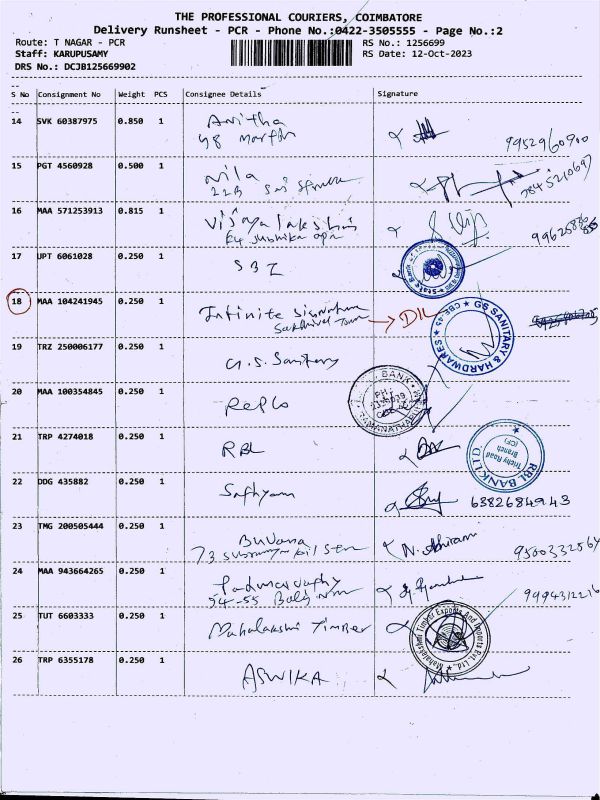 THE PROFESSIONAL COURIERS, COIMBATORE
Delivery Runsheet - PCR - Phone No.:0422-3505555 - Page No.:2
Route: T NAGAR - PCR RS No.: 1256699
Staff: KARUPUSAMY RS Date: 12-Oct-2023
DRS No.: DCJB125669902
S No Consignment No Weight PCS Consignee Details Signature
14 SVK 60387975 0.850 1 Anitha
48 9952960900
15 PGT 4560928 0.500 1 Nila
22B Sri 7845210697
16 MAA 571253913 0.815 1 Vijayalakshmi
E4
17 UPT 6061028 0.250 1 SBI
18 MAA 104241945 0.250 1 Infinite
Town DIL
GS SANITARY & HARDWARES CBE-45
19 TRZ 250006177 0.250 1 G.S. Sanitary
20 MAA 100354845 0.250 1 Repco
BANK
21 TRP 4274018 0.250 1 RBL
RBL BANK LTD.
Trichy Road
Branch
22 DDG 435882 0.250 1 Sathyam 6382684943
23 TMG 200505444 0.250 1 Buvana
73 N. Abiram 9500332564
24 MAA 943664265 0.250 1
54-55 9994312216
25 TUT 6603333 0.250 1 Mahalakshmi Timber
Mahalakshmi Timber Exports And Imports Pvt. Ltd.,
26 TRP 6355178 0.250 1 ASWIKA